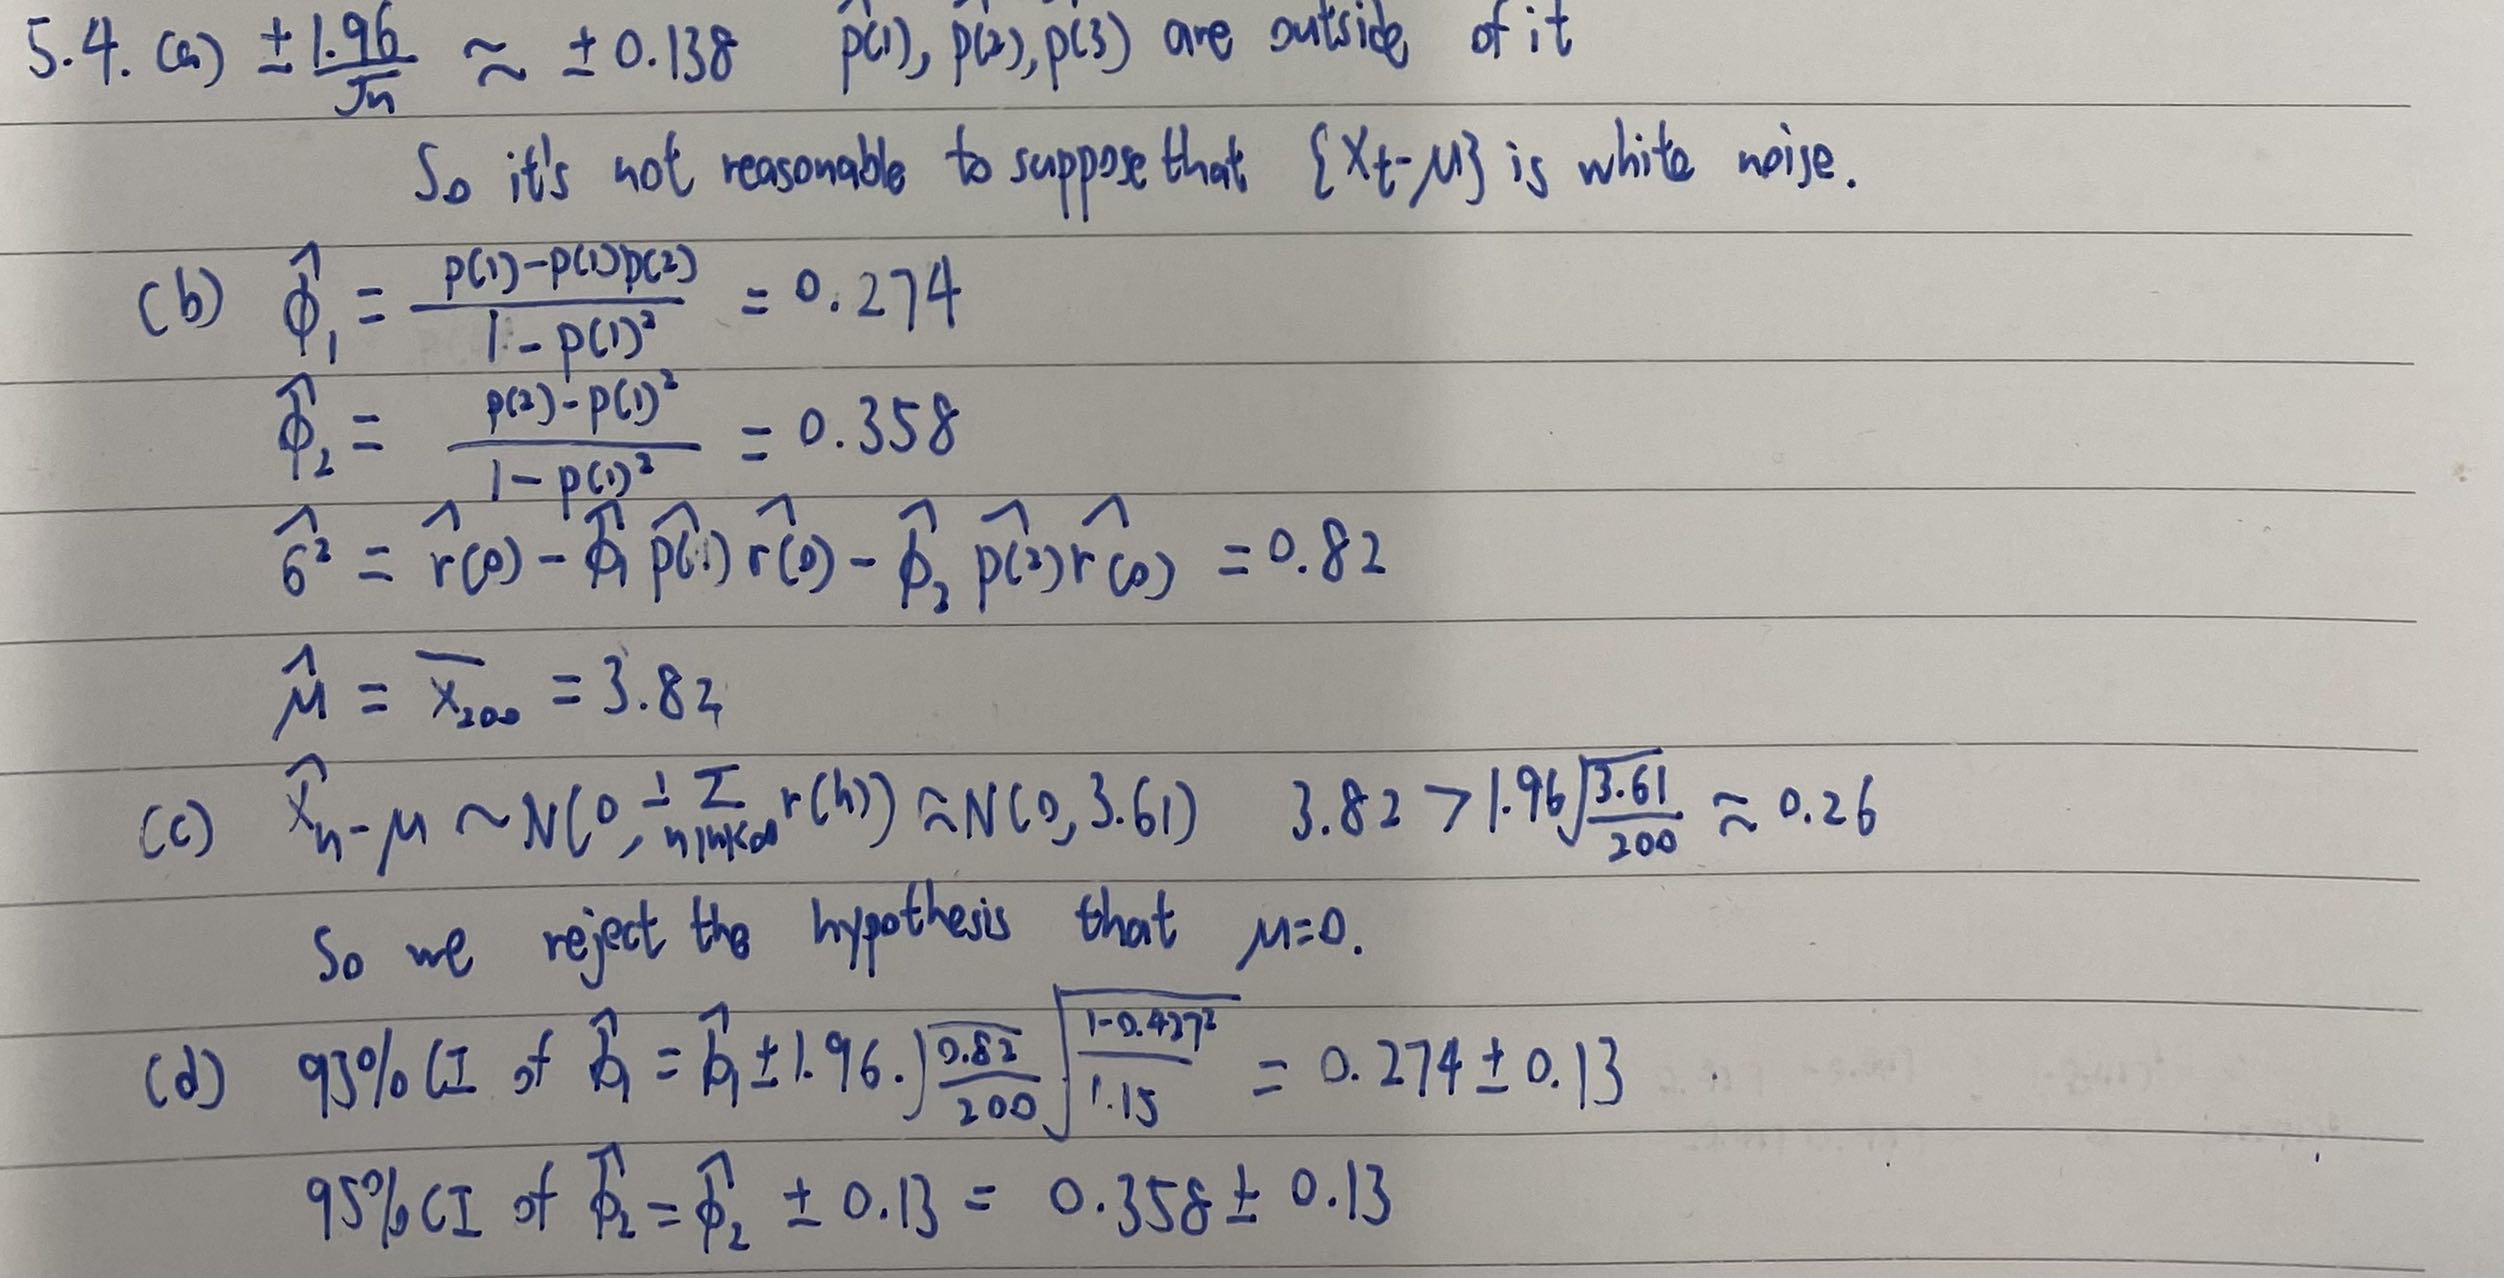 5.4. (a) ± 1.96/√n ≈ ± 0.138 ρ̂(1), ρ̂(2), ρ̂(3) are outside of it
So it's not reasonable to suppose that {Xt-μ} is white noise.
(b) φ̂₁ = (ρ(1)-ρ(1)ρ(2))/(1-ρ(1)²) = 0.274
φ̂₂ = (ρ(2)-ρ(1)²)/(1-ρ(1)²) = 0.358
σ̂² = r̂(0) - φ̂₁ ρ̂(1) r̂(0) - φ̂₂ ρ̂(2) r̂(0) = 0.82
μ̂ = X̄₂₀₀ = 3.82
(c) X̂n-μ ~ N(0, 1/n Σ|h|<∞ r(h)) ≈ N(0, 3.61) 3.82 > 1.96√(3.61/200) ≈ 0.26
So we reject the hypothesis that μ=0.
(d) 95% CI of φ̂₁ = φ̂₁ ± 1.96·√(0.82/200) √((1-0.427²)/1.15) = 0.274 ± 0.13
95% CI of φ̂₂ = φ̂₂ ± 0.13 = 0.358 ± 0.13